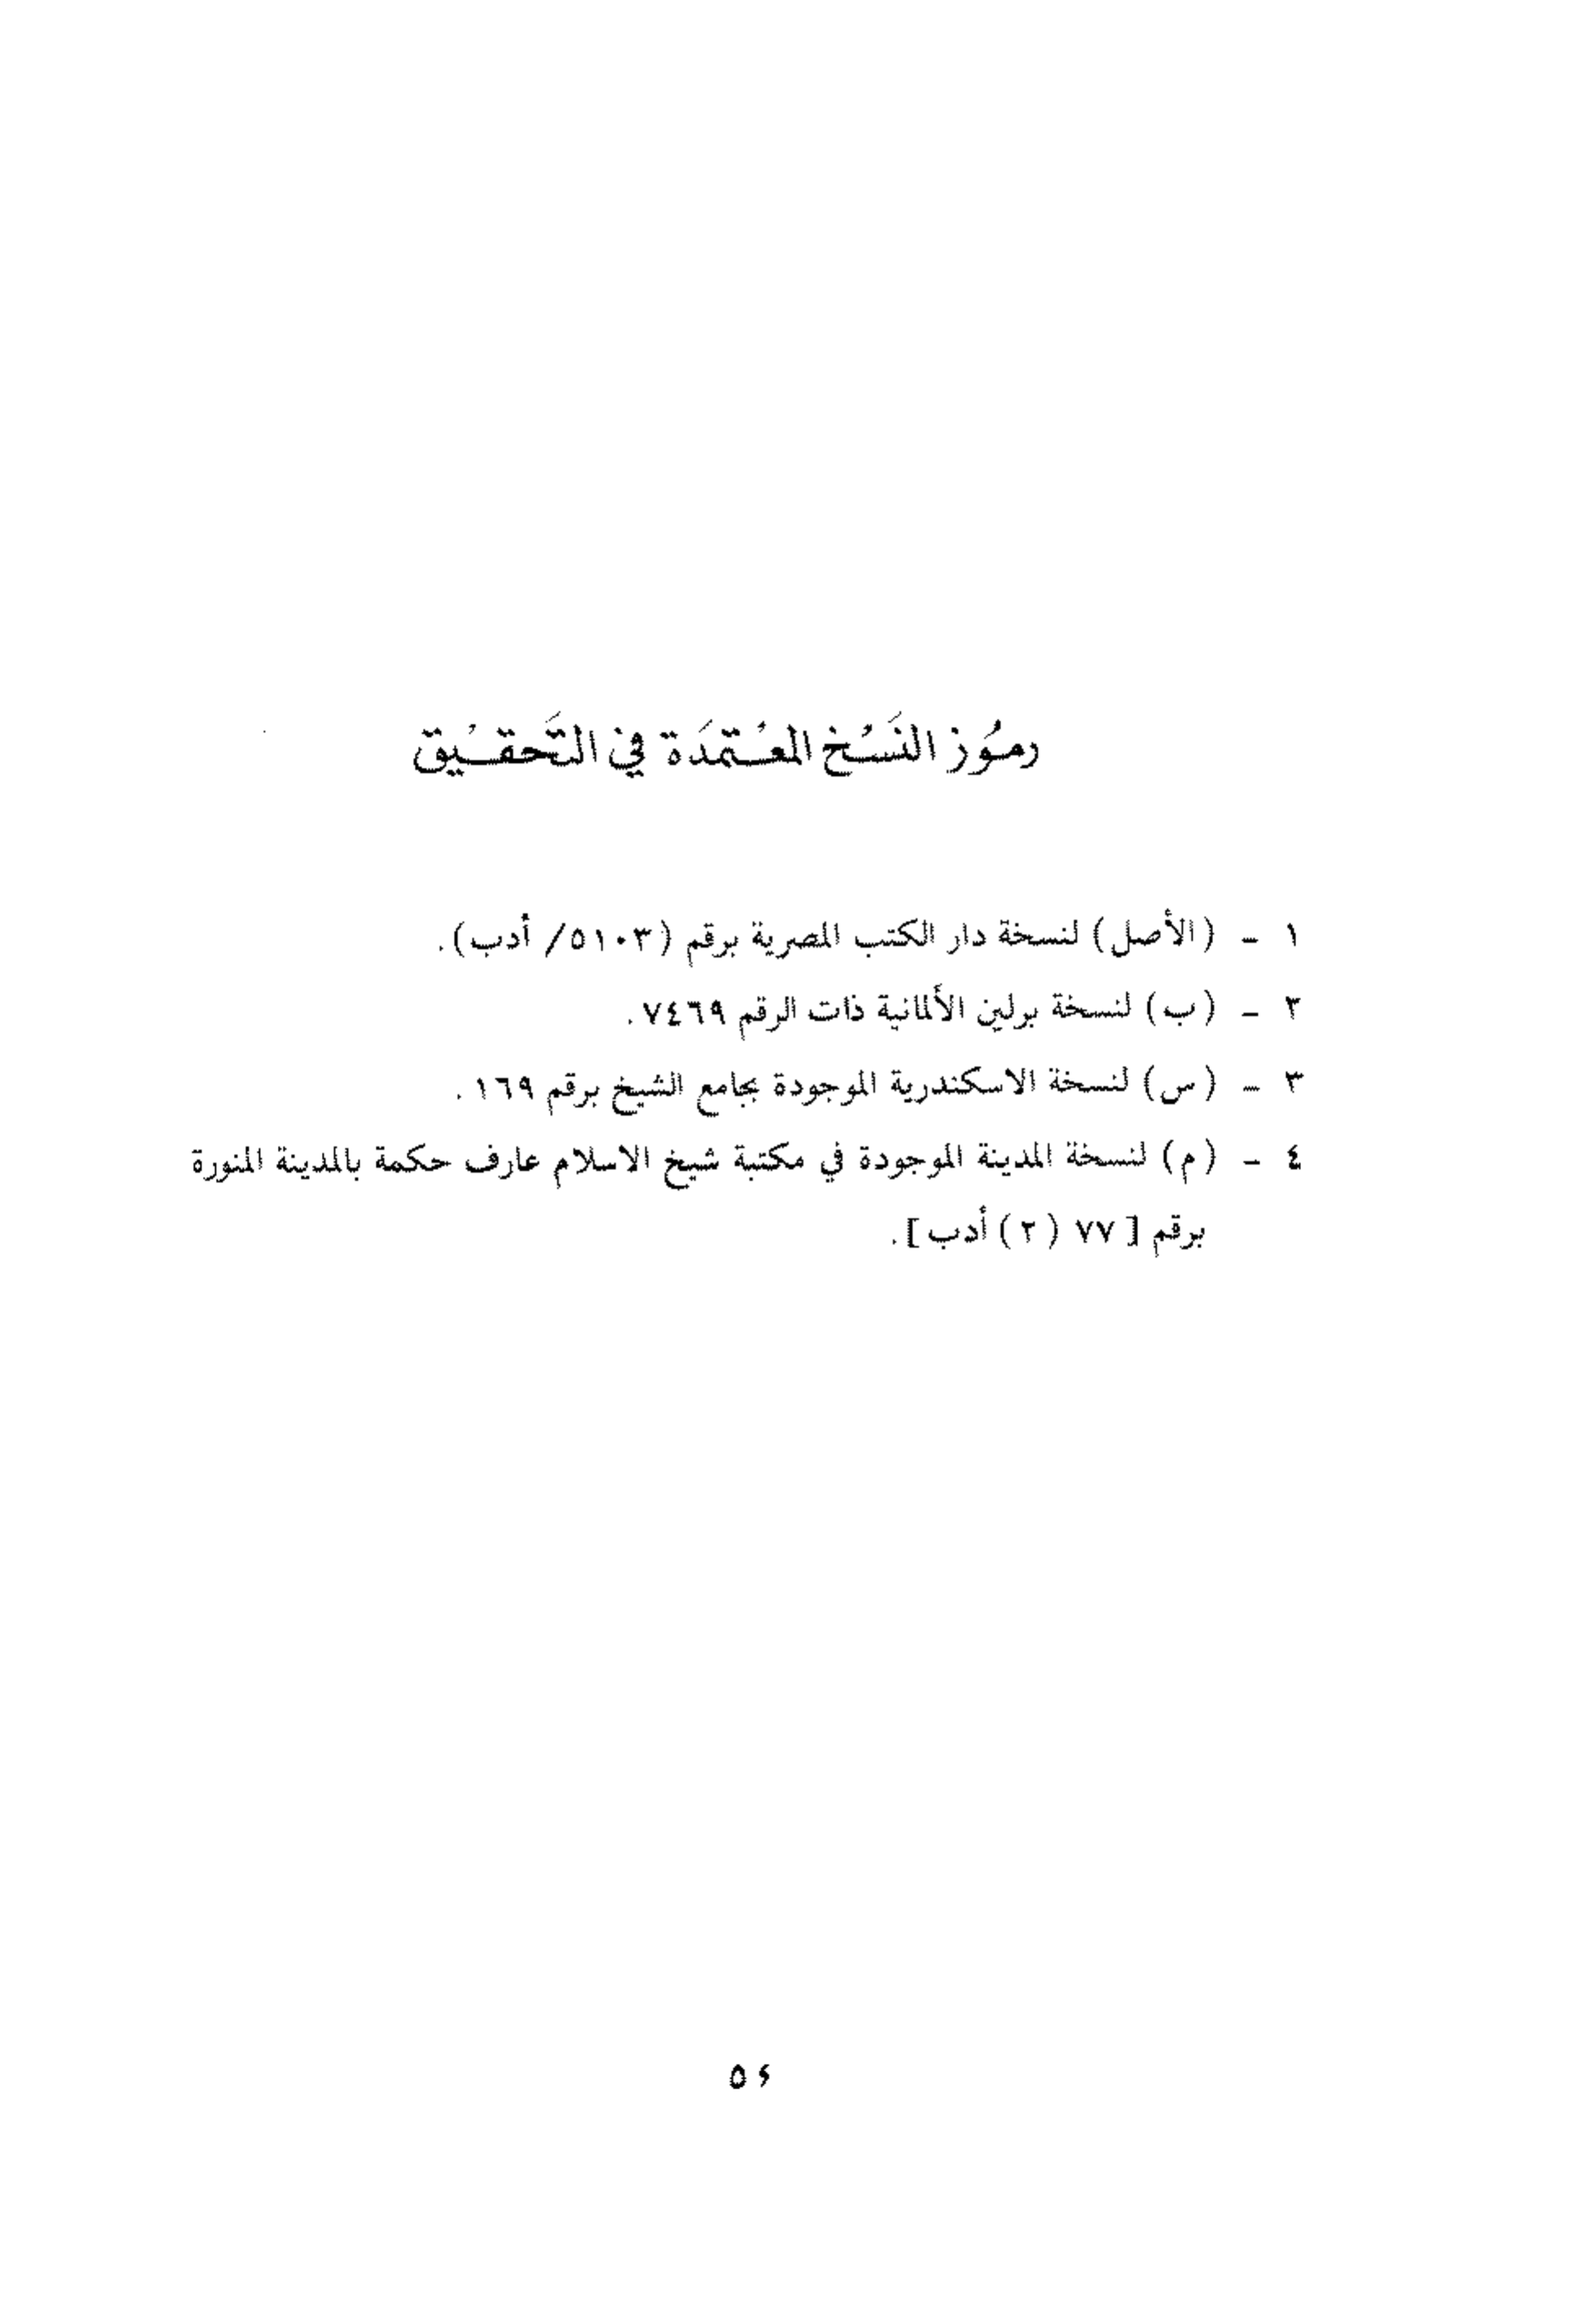 رموز النسخ المعتمدة في التحقيق
١ - (الأصل) لنسخة دار الكتب المصرية برقم (٥١٠٣/ أدب).
٢ - (ب) لنسخة برلين الألمانية ذات الرقم ٧٤٦٩.
٣ - (س) لنسخة الاسكندرية الموجودة بجامع الشيخ برقم ١٦٩.
٤ - (م) لنسخة المدينة الموجودة في مكتبة شيخ الاسلام عارف حكمة بالمدينة المنورة
برقم [ ٧٧ (٢) أدب ].
٥٤